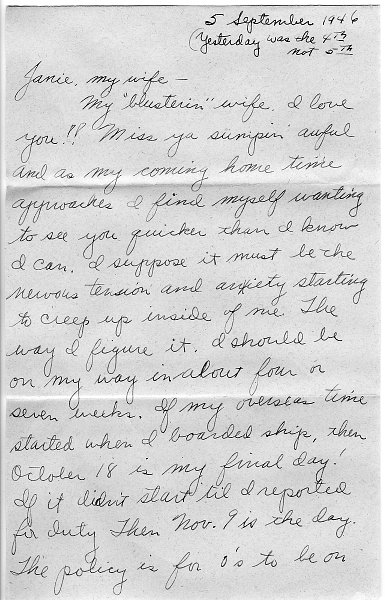 5 September 1946
(Yesterday was the 4TH
not 5TH
Janie, my wife —
My "blusterin" wife. I love
you!! Miss ya sumpin' awful
and as my coming home time
approaches I find myself wanting
to see you quicker than I know
I can. I suppose it must be the
nervous tension and anxiety starting
to creep up inside of me. The
way I figure it. I should be
on my way in about four or
seven weeks. If my overseas time
started when I boarded ship, then
October 18 is my final day!
If it didn't start 'til I reported
for duty Then Nov. 9 is the day.
The policy is for O's to be on